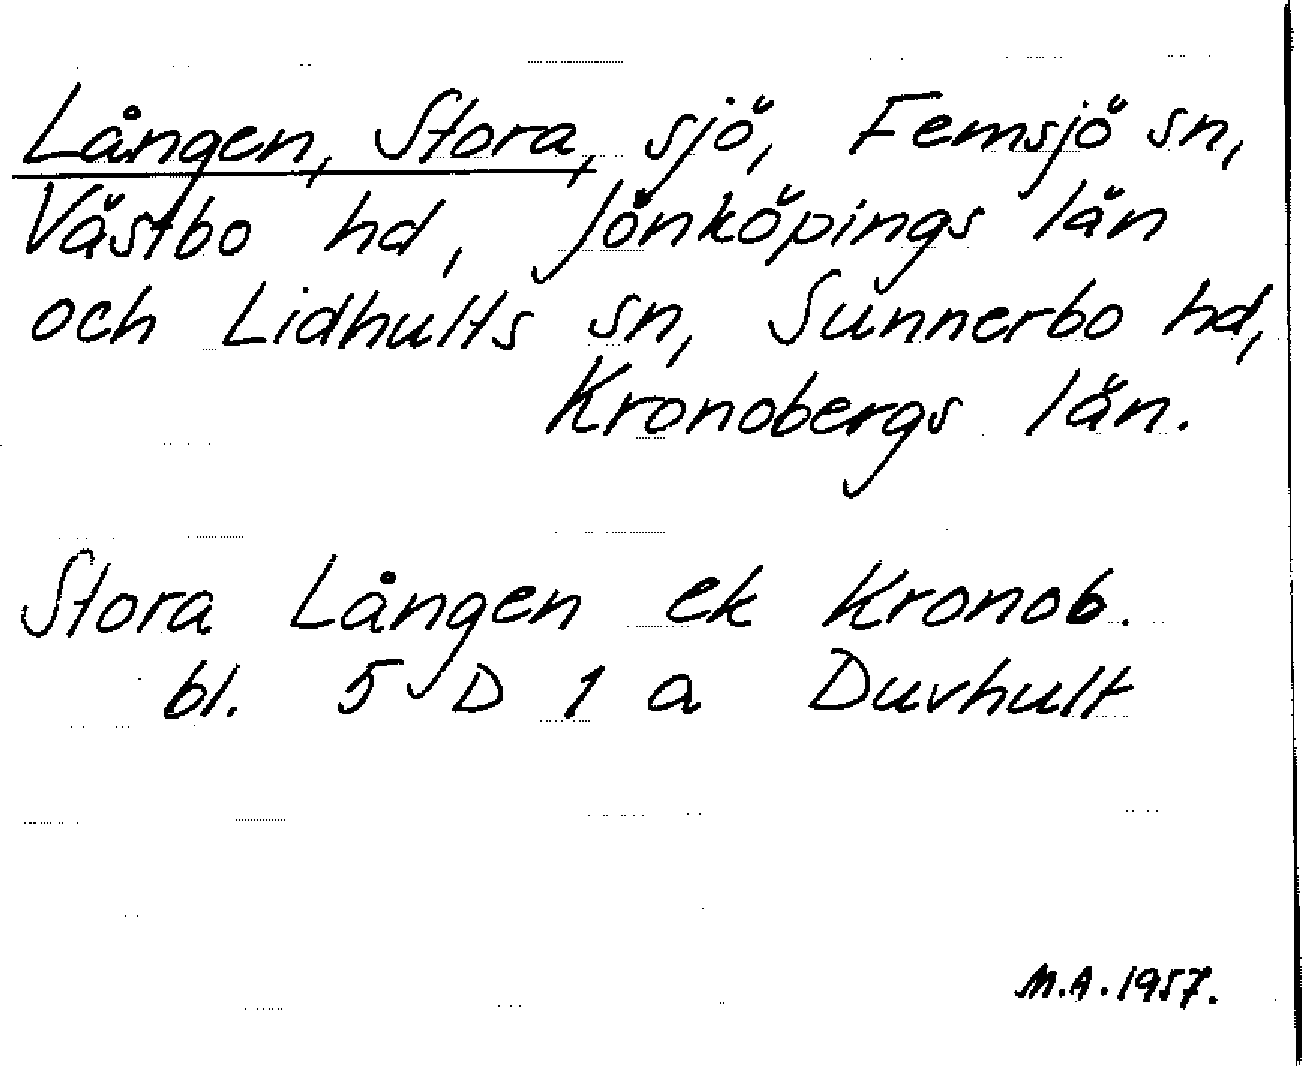 Lången, Stora, sjö, Femsjö sn,
Västbo hd, Jönköpings län
och Lidhults sn, Sunnerbo hd,
Kronobergs län.
Stora Lången ek Kronob.
bl. 5 D 1 a Duvhult
M.A. 1957.